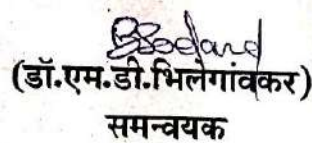 (डॉ.एम.डी.भिलेगांवकर)
समन्वयक